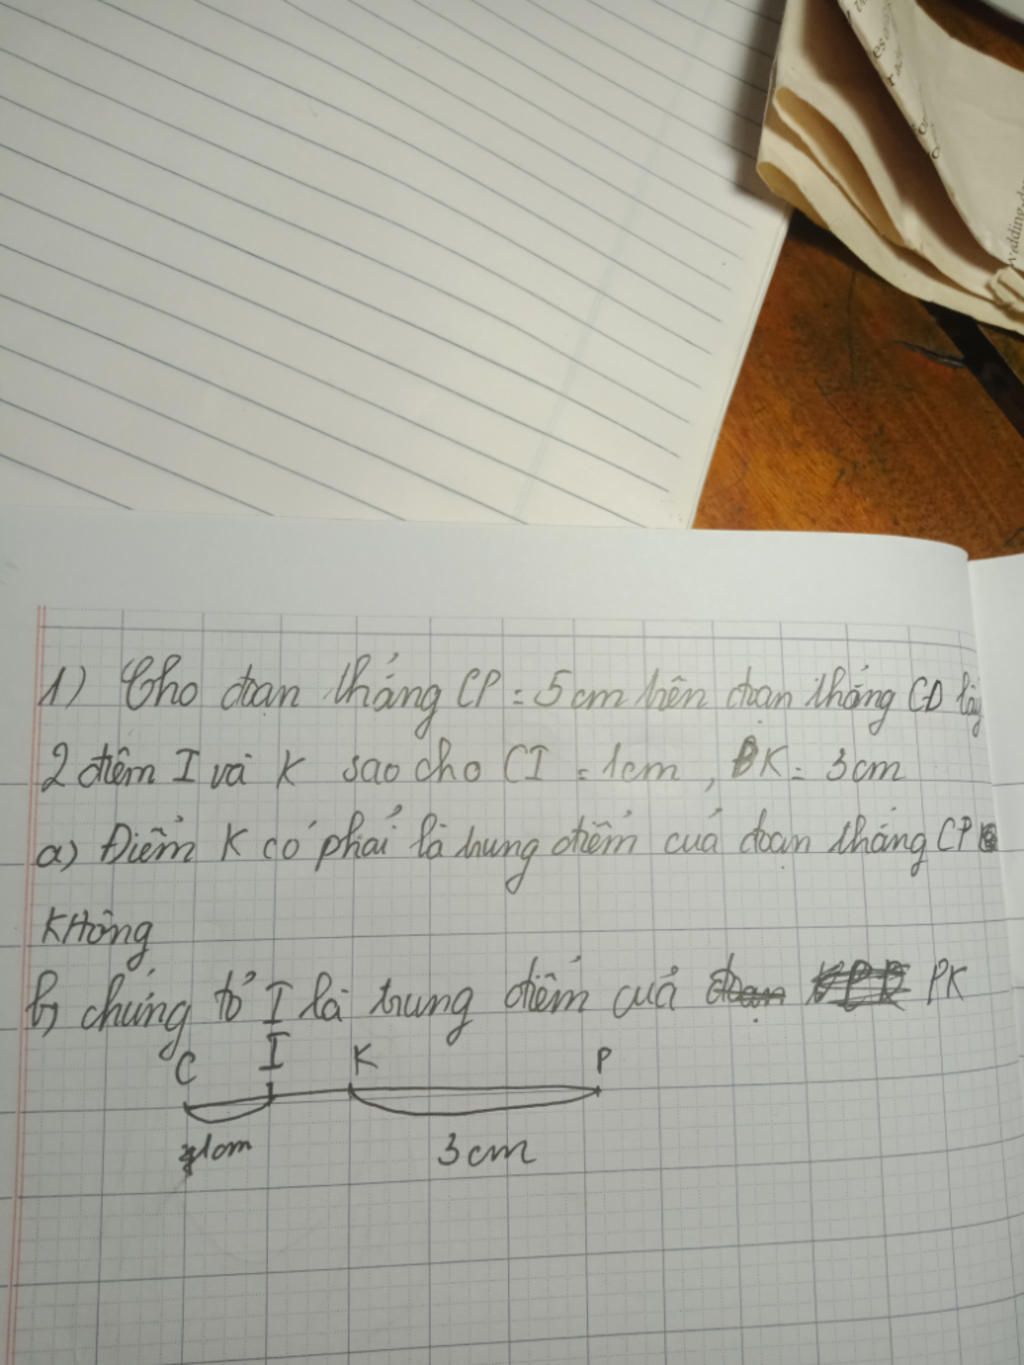 1) Cho đoạn thẳng CP = 5cm trên đoạn thẳng CD lấy
2 điểm I và K sao cho CI = 1cm, PK = 3cm
a) Điểm K có phải là trung điểm của đoạn thẳng CP
không
b) chứng tỏ I là trung điểm của PK
C I K P
1cm 3cm